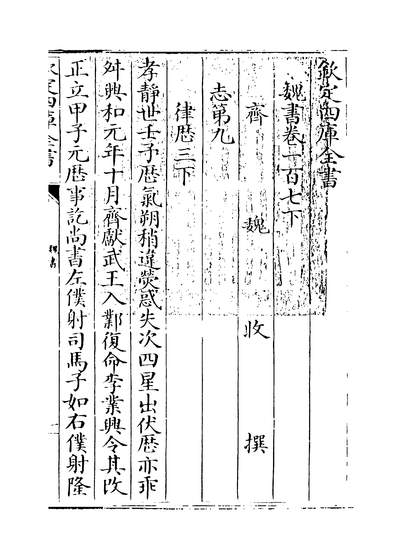 欽定四庫全書
魏書卷一百七下
齊魏收撰
志第九
律歴三下
孝静世壬子歴氣朔稍違熒惑失次四星出伏歴亦乖
舛興和元年十月齊獻武王入鄴復命李業興令其改
正立甲子元歴事訖尚書左僕射司馬子如右僕射隆
欽定四庫全書
魏書
一